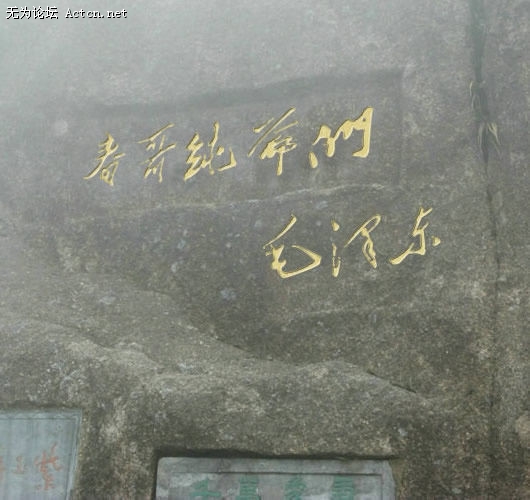 无为论坛 Actcn.net
春哥纯爷们
毛泽东